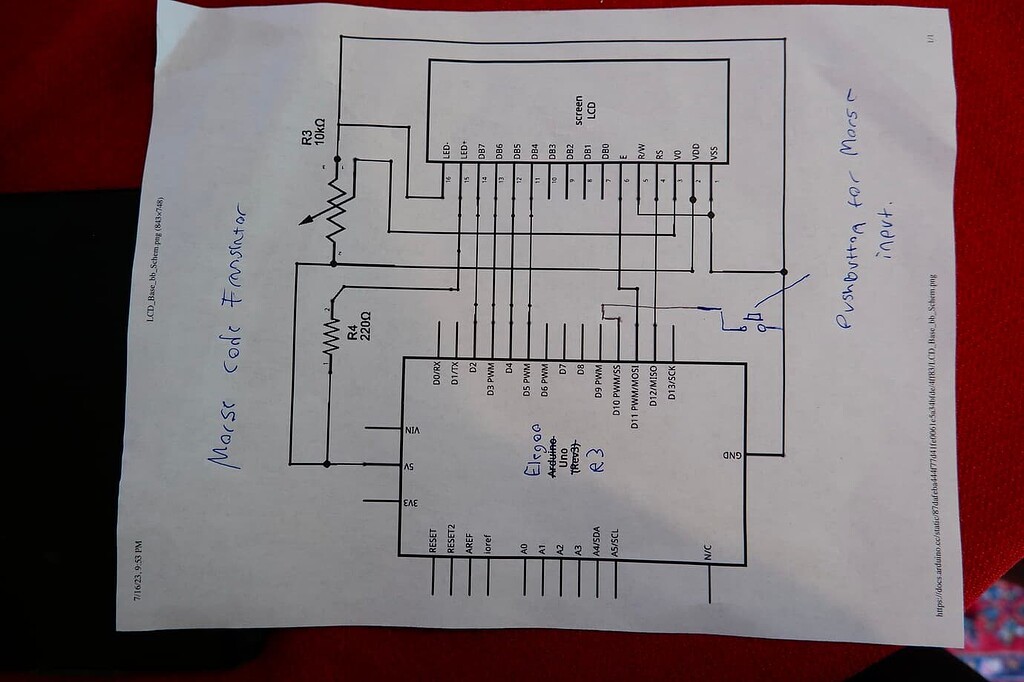 7/16/23, 9:53 PM
LCD_Base_bb_Schem.png (843×748)
Morse code Translator
R3
10kΩ
R4
220Ω
screen
LCD
LED-
LED+
DB7
DB6
DB5
DB4
DB3
DB2
DB1
DB0
E
R/W
RS
V0
VDD
VSS
16
15
14
13
12
11
10
9
8
7
6
5
4
3
2
1
D0/RX
D1/TX
D2
D3 PWM
D4
D5 PWM
D6 PWM
D7
D8
D9 PWM
D10 PWM/SS
D11 PWM/MOSI
D12/MISO
D13/SCK
VIN
5V
3V3
Elegoo
Arduino
Uno
(Rev3)
R3
GND
RESET
RESET2
AREF
ioref
A0
A1
A2
A3
A4/SDA
A5/SCL
N/C
Pushbutton for Morse
input.
1/1